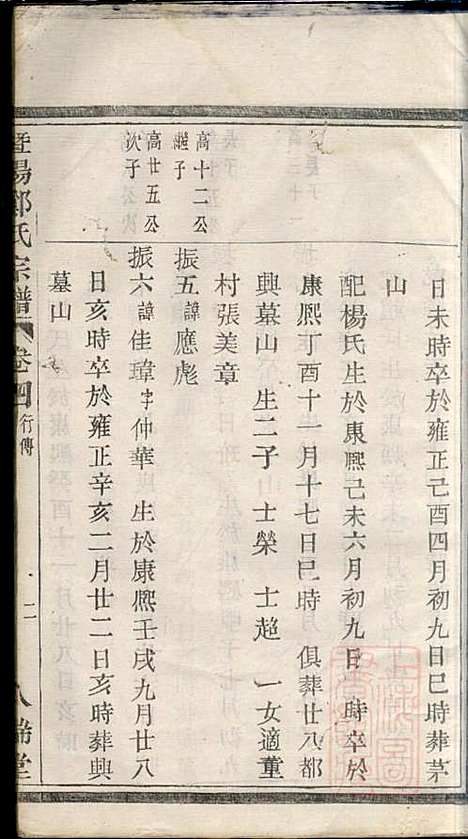 日未時卒於雍正己酉四月初九日巳時葬茅
山
配楊氏生於康熙己未六月初九日 時卒於
康熙丁酉十一月十七日巳時 俱葬廿八都
興墓山 生二子 士榮 士超 一女適童
村張美章
高十二公
繼子
振五諱應彪
高廿五公
次子
振六諱佳瑋字仲華 生於康熙壬戌九月廿八
日亥時卒於雍正辛亥二月廿二日亥時葬興
墓山
暨陽鄭氏宗譜 卷四 行傳 二 八瑞堂